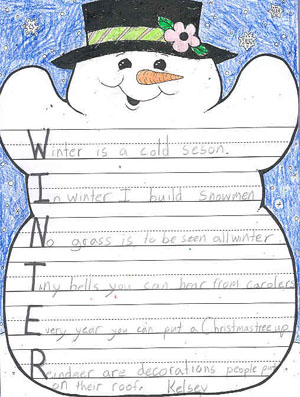 Winter is a cold seson.
In winter I build snowmen
No grass is to be seen all winter
Tiny bells you can hear from carolers
Every year you can put a Christmas tree up
Reindeer are decorations people put
on their roof. Kelsey